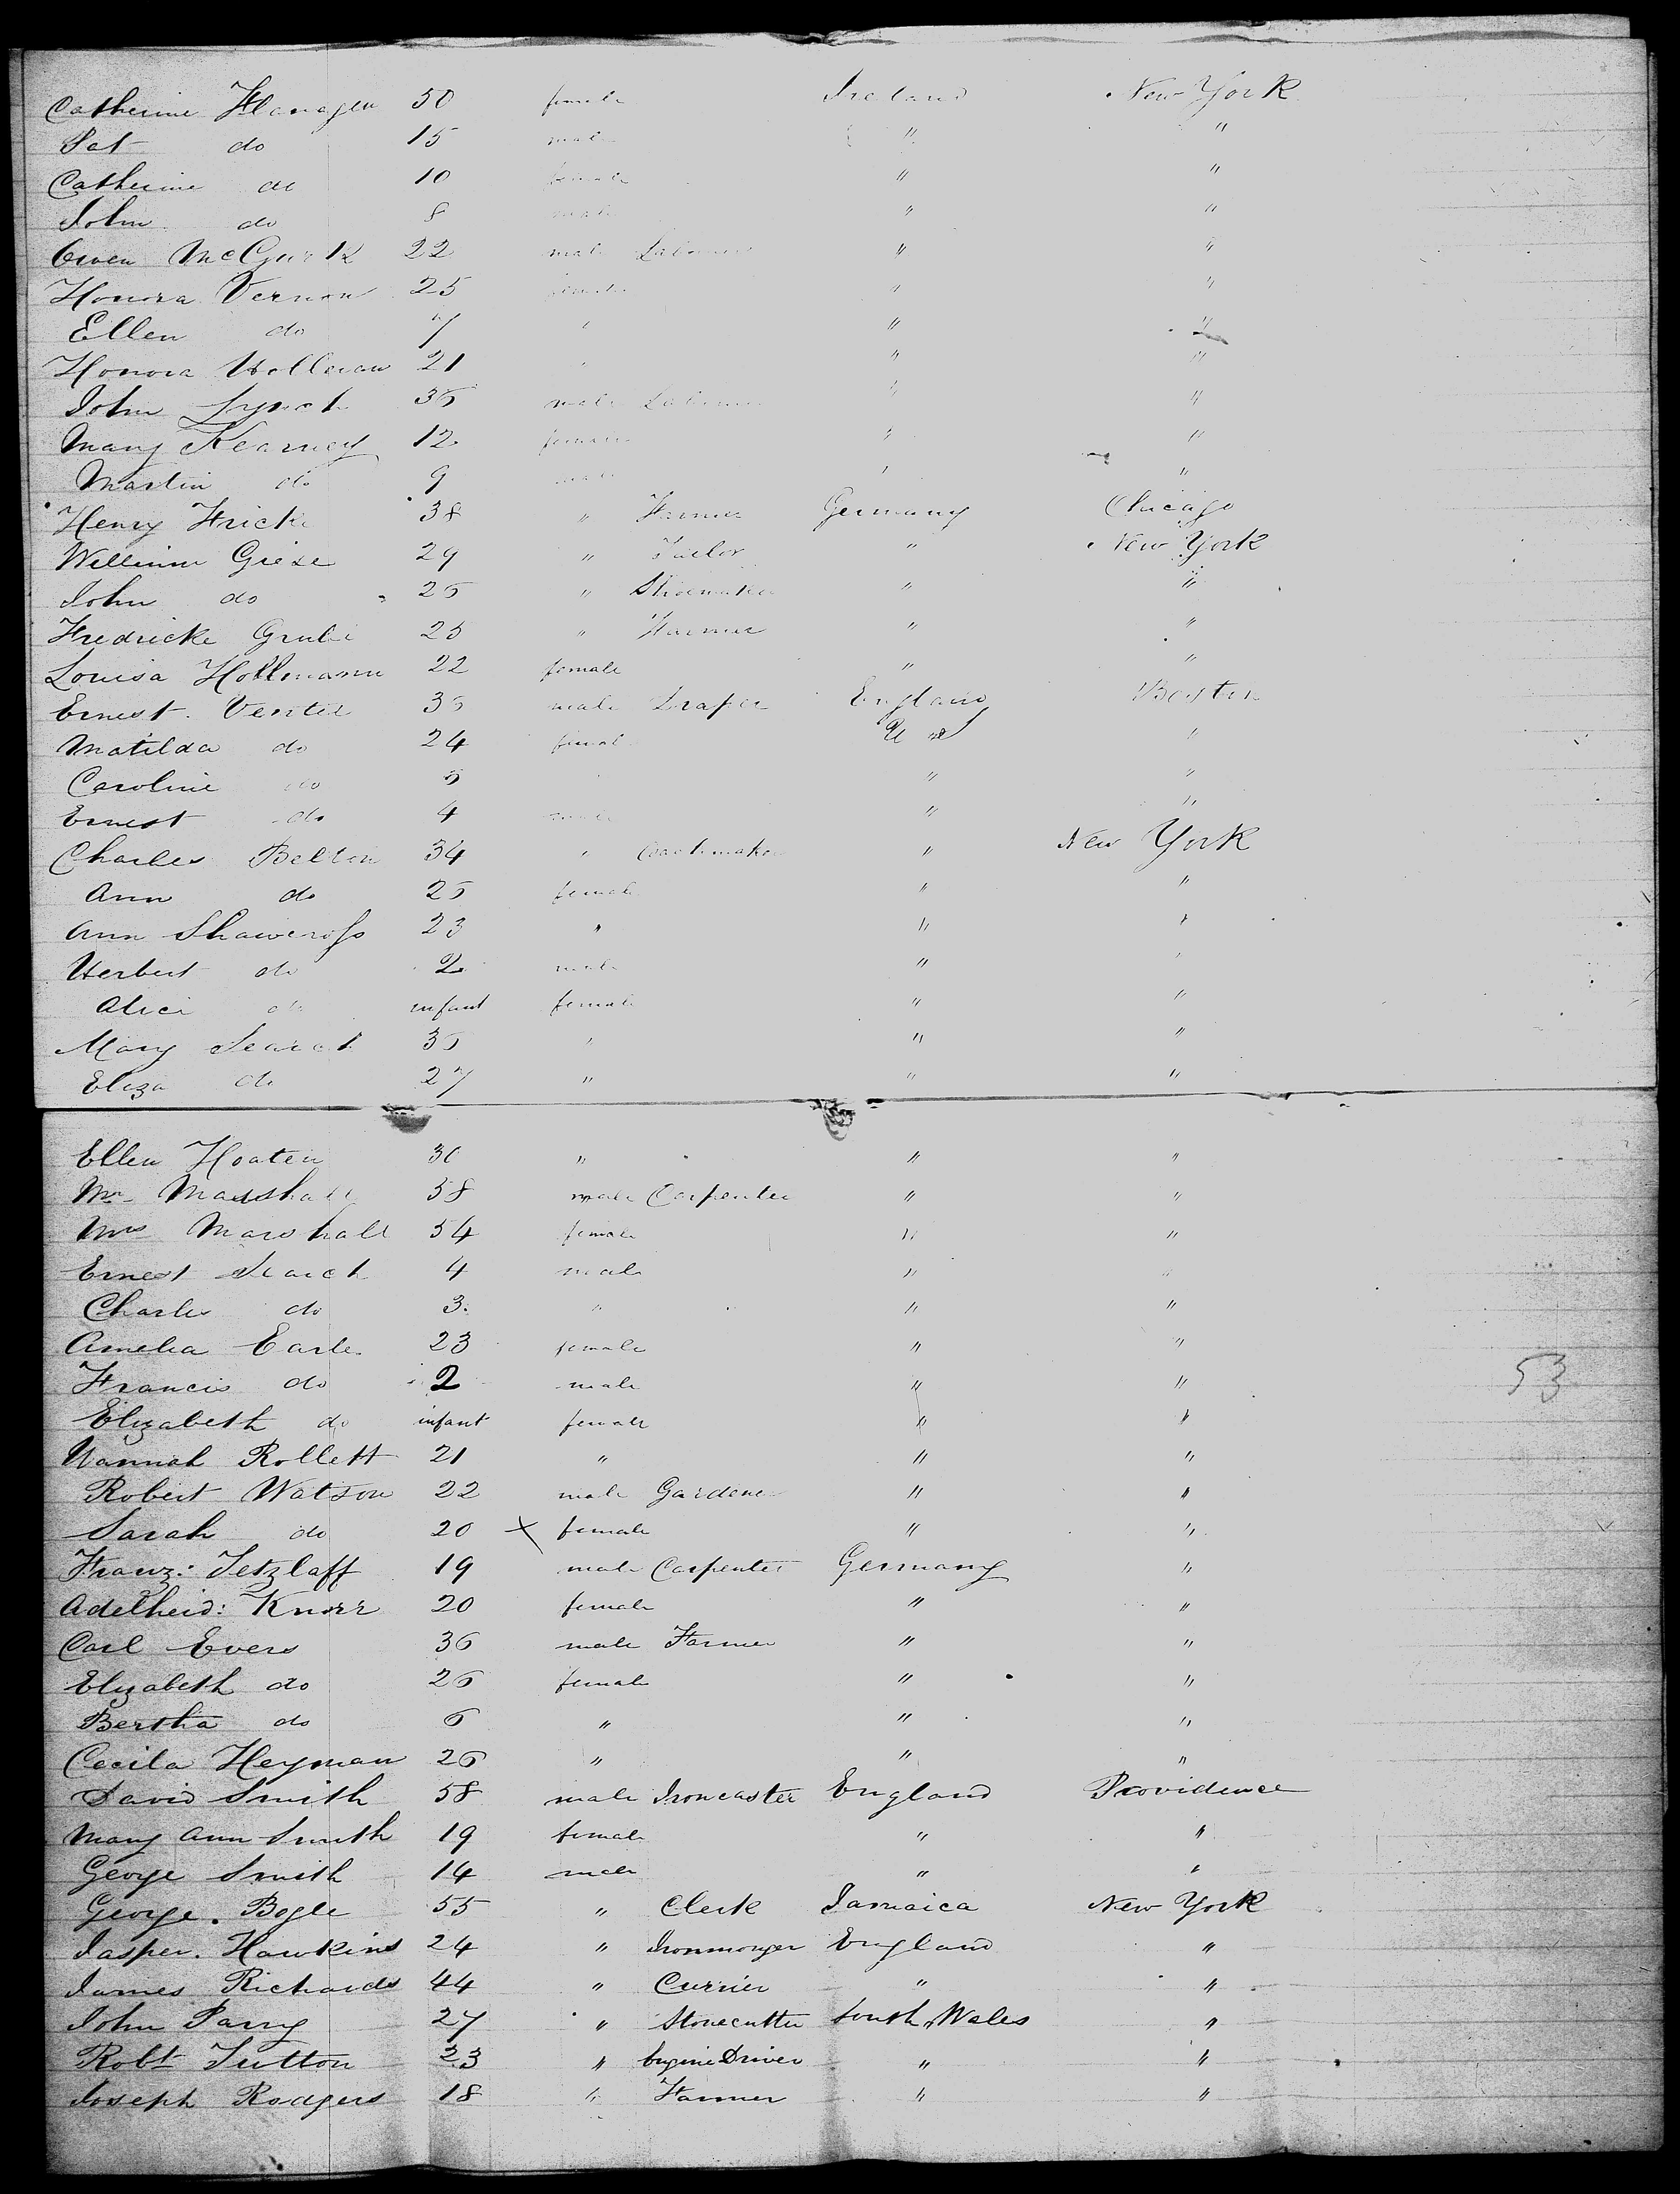 Catherine Flanagen 50 female Ireland New York
Pat do 15 male " "
Catherine do 10 female " "
John do 8 male " "
Owen McGurk 22 male Laborer " "
Honora Vernon 25 female " "
Ellen do 7 " " "
Honora Holleran 21 " " "
John Lynch 35 male Laborer " "
Mary Kearney 12 female " "
Martin do 9 male " "
Henry Frick 38 " Farmer Germany Chicago
William Giese 29 " Tailor " New York
John do 26 " Shoemaker " "
Fredricke Grube 25 " Farmer " "
Louisa Hollmann 22 female " "
Ernest Venter 35 male Draper England Boston
Matilda do 24 female U S "
Caroline do 5 " " "
Ernest do 4 male " "
Charles Belton 34 " Coachmaker " New York
Ann do 25 female " "
Ann Shawcross 23 " " "
Herbert do 2 male " "
Alice do infant female " "
Mary Search 35 " " "
Eliza do 27 " " "
Ellen Hoaten 30 " " "
Mr Marshall 58 male Carpenter " "
Mrs Marshall 54 female " "
Ernest Search 4 male " "
Charles do 3 " " "
Amelia Earle 23 female " "
Francis do 2 male " " 53
Elizabeth do infant female " "
Hannah Rollett 21 " " "
Robert Watson 22 male Gardener " "
Sarah do 20 X female " "
Franz: Tetzlaff 19 male Carpenter Germany "
Adelheid: Knorr 20 female " "
Carl Evers 36 male Farmer " "
Elizabeth do 26 female " "
Bertha do 6 " " "
Cecila Heyman 26 " " "
David Smith 58 male Ironcaster England Providence
Mary Ann Smith 19 female " "
George Smith 14 male " "
George. Bogle 55 " Clerk Jamaica New York
Jasper. Hawkins 24 " Ironmonger England "
James Richards 44 " Currier " "
John Parry 27 " Stonecutter South Wales "
Robt Sutton 23 " Engine Driver " "
Joseph Rodgers 18 " Farmer " "